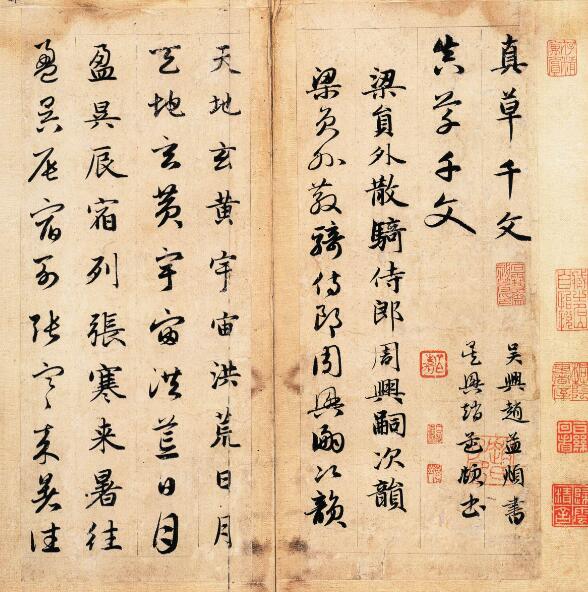 真草千文
真草千文
吴興趙孟頫書
吴興趙孟頫書
梁員外散騎侍郎周興嗣次韻
梁員外散騎侍郎周興嗣次韻
天地玄黄宇宙洪荒日月
天地玄黄宇宙洪荒日月
盈昃辰宿列張寒来暑往
盈昃辰宿列張寒来暑往